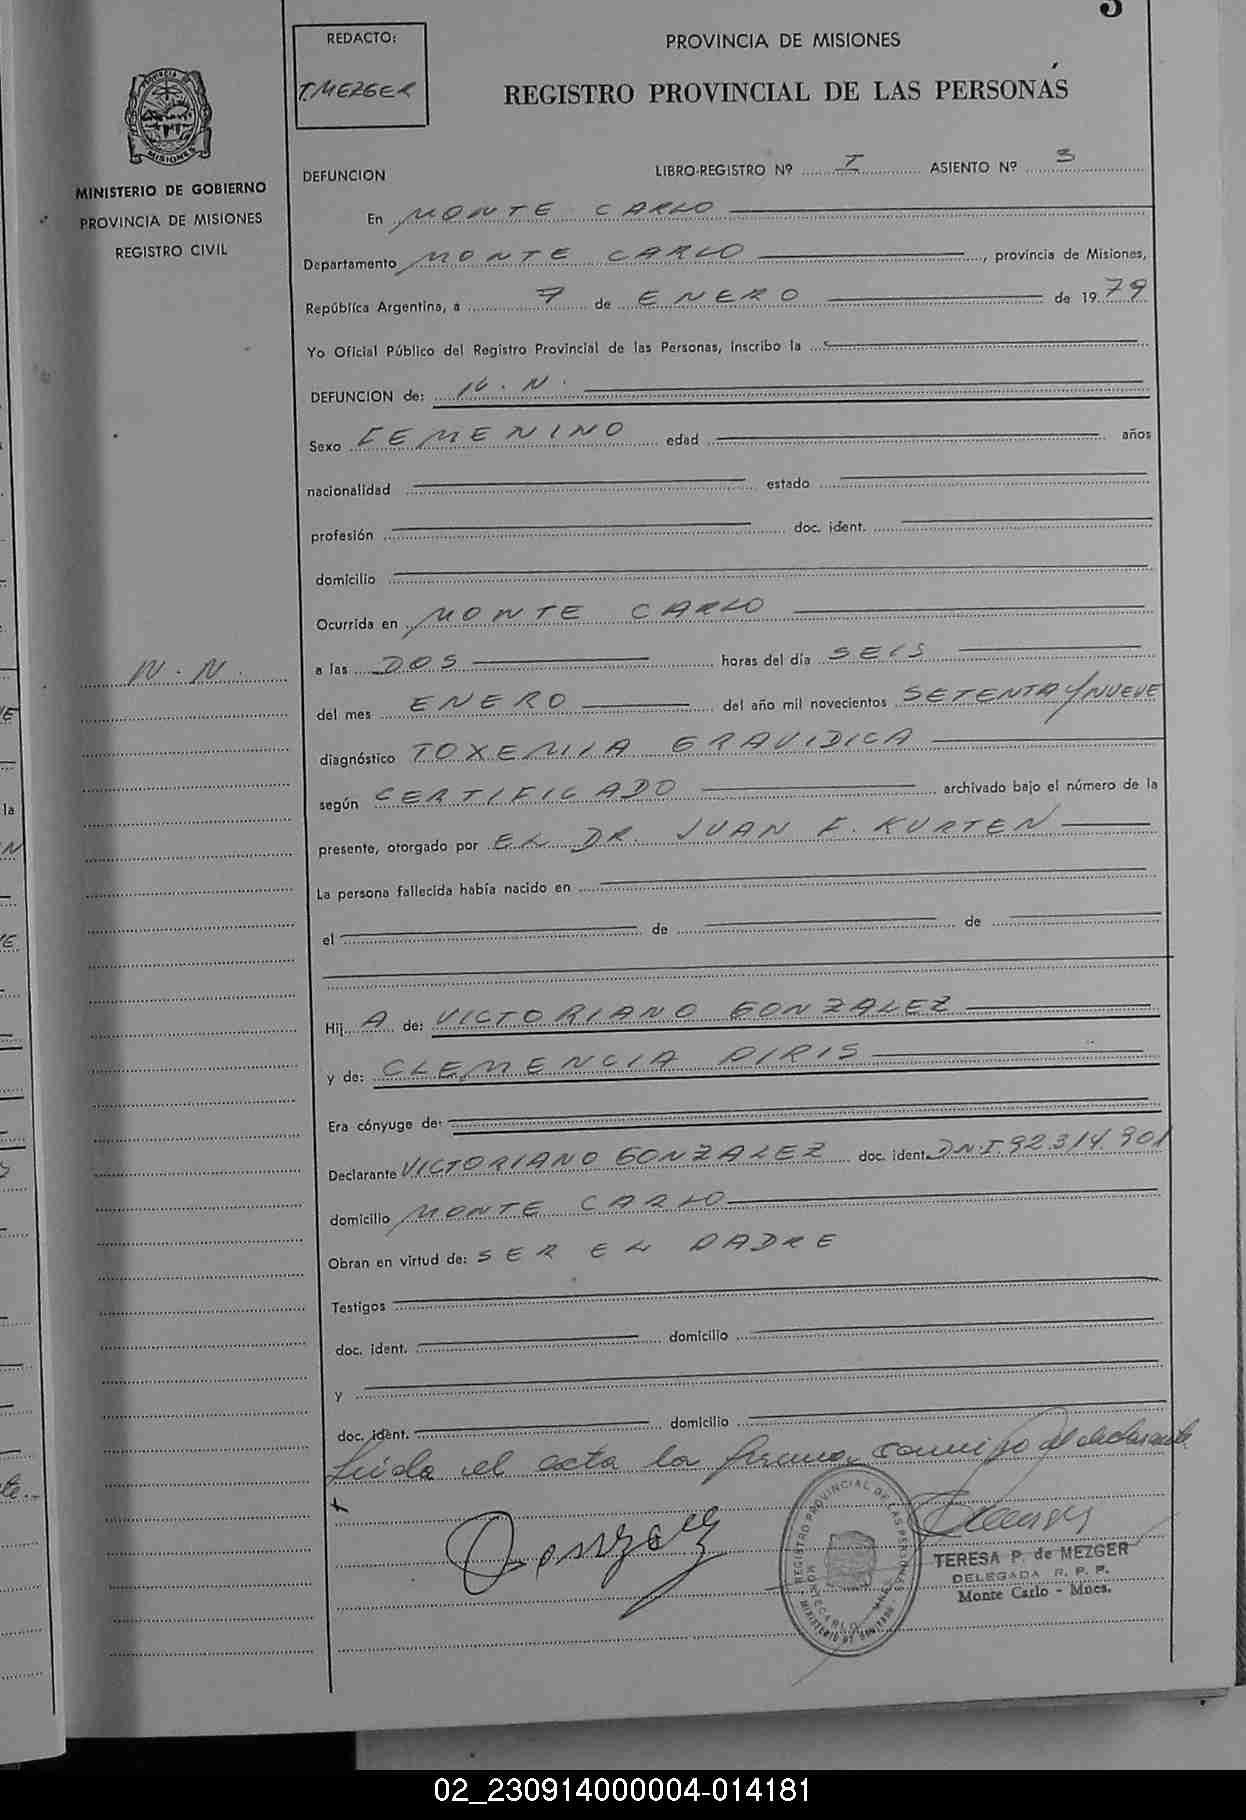 3
REDACTO:
T. MEZGER
PROVINCIA DE MISIONES
REGISTRO PROVINCIAL DE LAS PERSONAS
MINISTERIO DE GOBIERNO
PROVINCIA DE MISIONES
REGISTRO CIVIL
DEFUNCION LIBRO-REGISTRO Nº I ASIENTO Nº 3
En MONTE CARLO
Departamento MONTE CARLO, provincia de Misiones,
República Argentina, a 7 de ENERO de 1979
Yo Oficial Público del Registro Provincial de las Personas, Inscribo la
DEFUNCION de: N.N.
Sexo FEMENINO edad años
nacionalidad estado
profesión doc. ident.
domicilio
Ocurrida en MONTE CARLO
N.N.
a las DOS horas del día SEIS
del mes ENERO del año mil novecientos SETENTA Y NUEVE
diagnóstico TOXEMIA GRAVIDICA
según CERTIFICADO archivado bajo el número de la
presente, otorgado por EL DR. JUAN F. KURTEN
La persona fallecida había nacido en
el de de
Hij A de: VICTORIANO GONZALEZ
y de: CLEMENCIA PIRIS
Era cónyuge de:
Declarante VICTORIANO GONZALEZ doc. ident. DN.I.92.314.901
domicilio MONTE CARLO
Obran en virtud de: SER EL PADRE
Testigos
doc. ident. domicilio
y
doc. ident. domicilio
Leida el acta la firma conmigo el declarante
Gonzalez
REGISTRO PROVINCIAL DE LAS PERSONAS
TERESA P. de MEZGER
DELEGADA R. P. P.
Monte Carlo - Mnes.
02_230914000004-014181